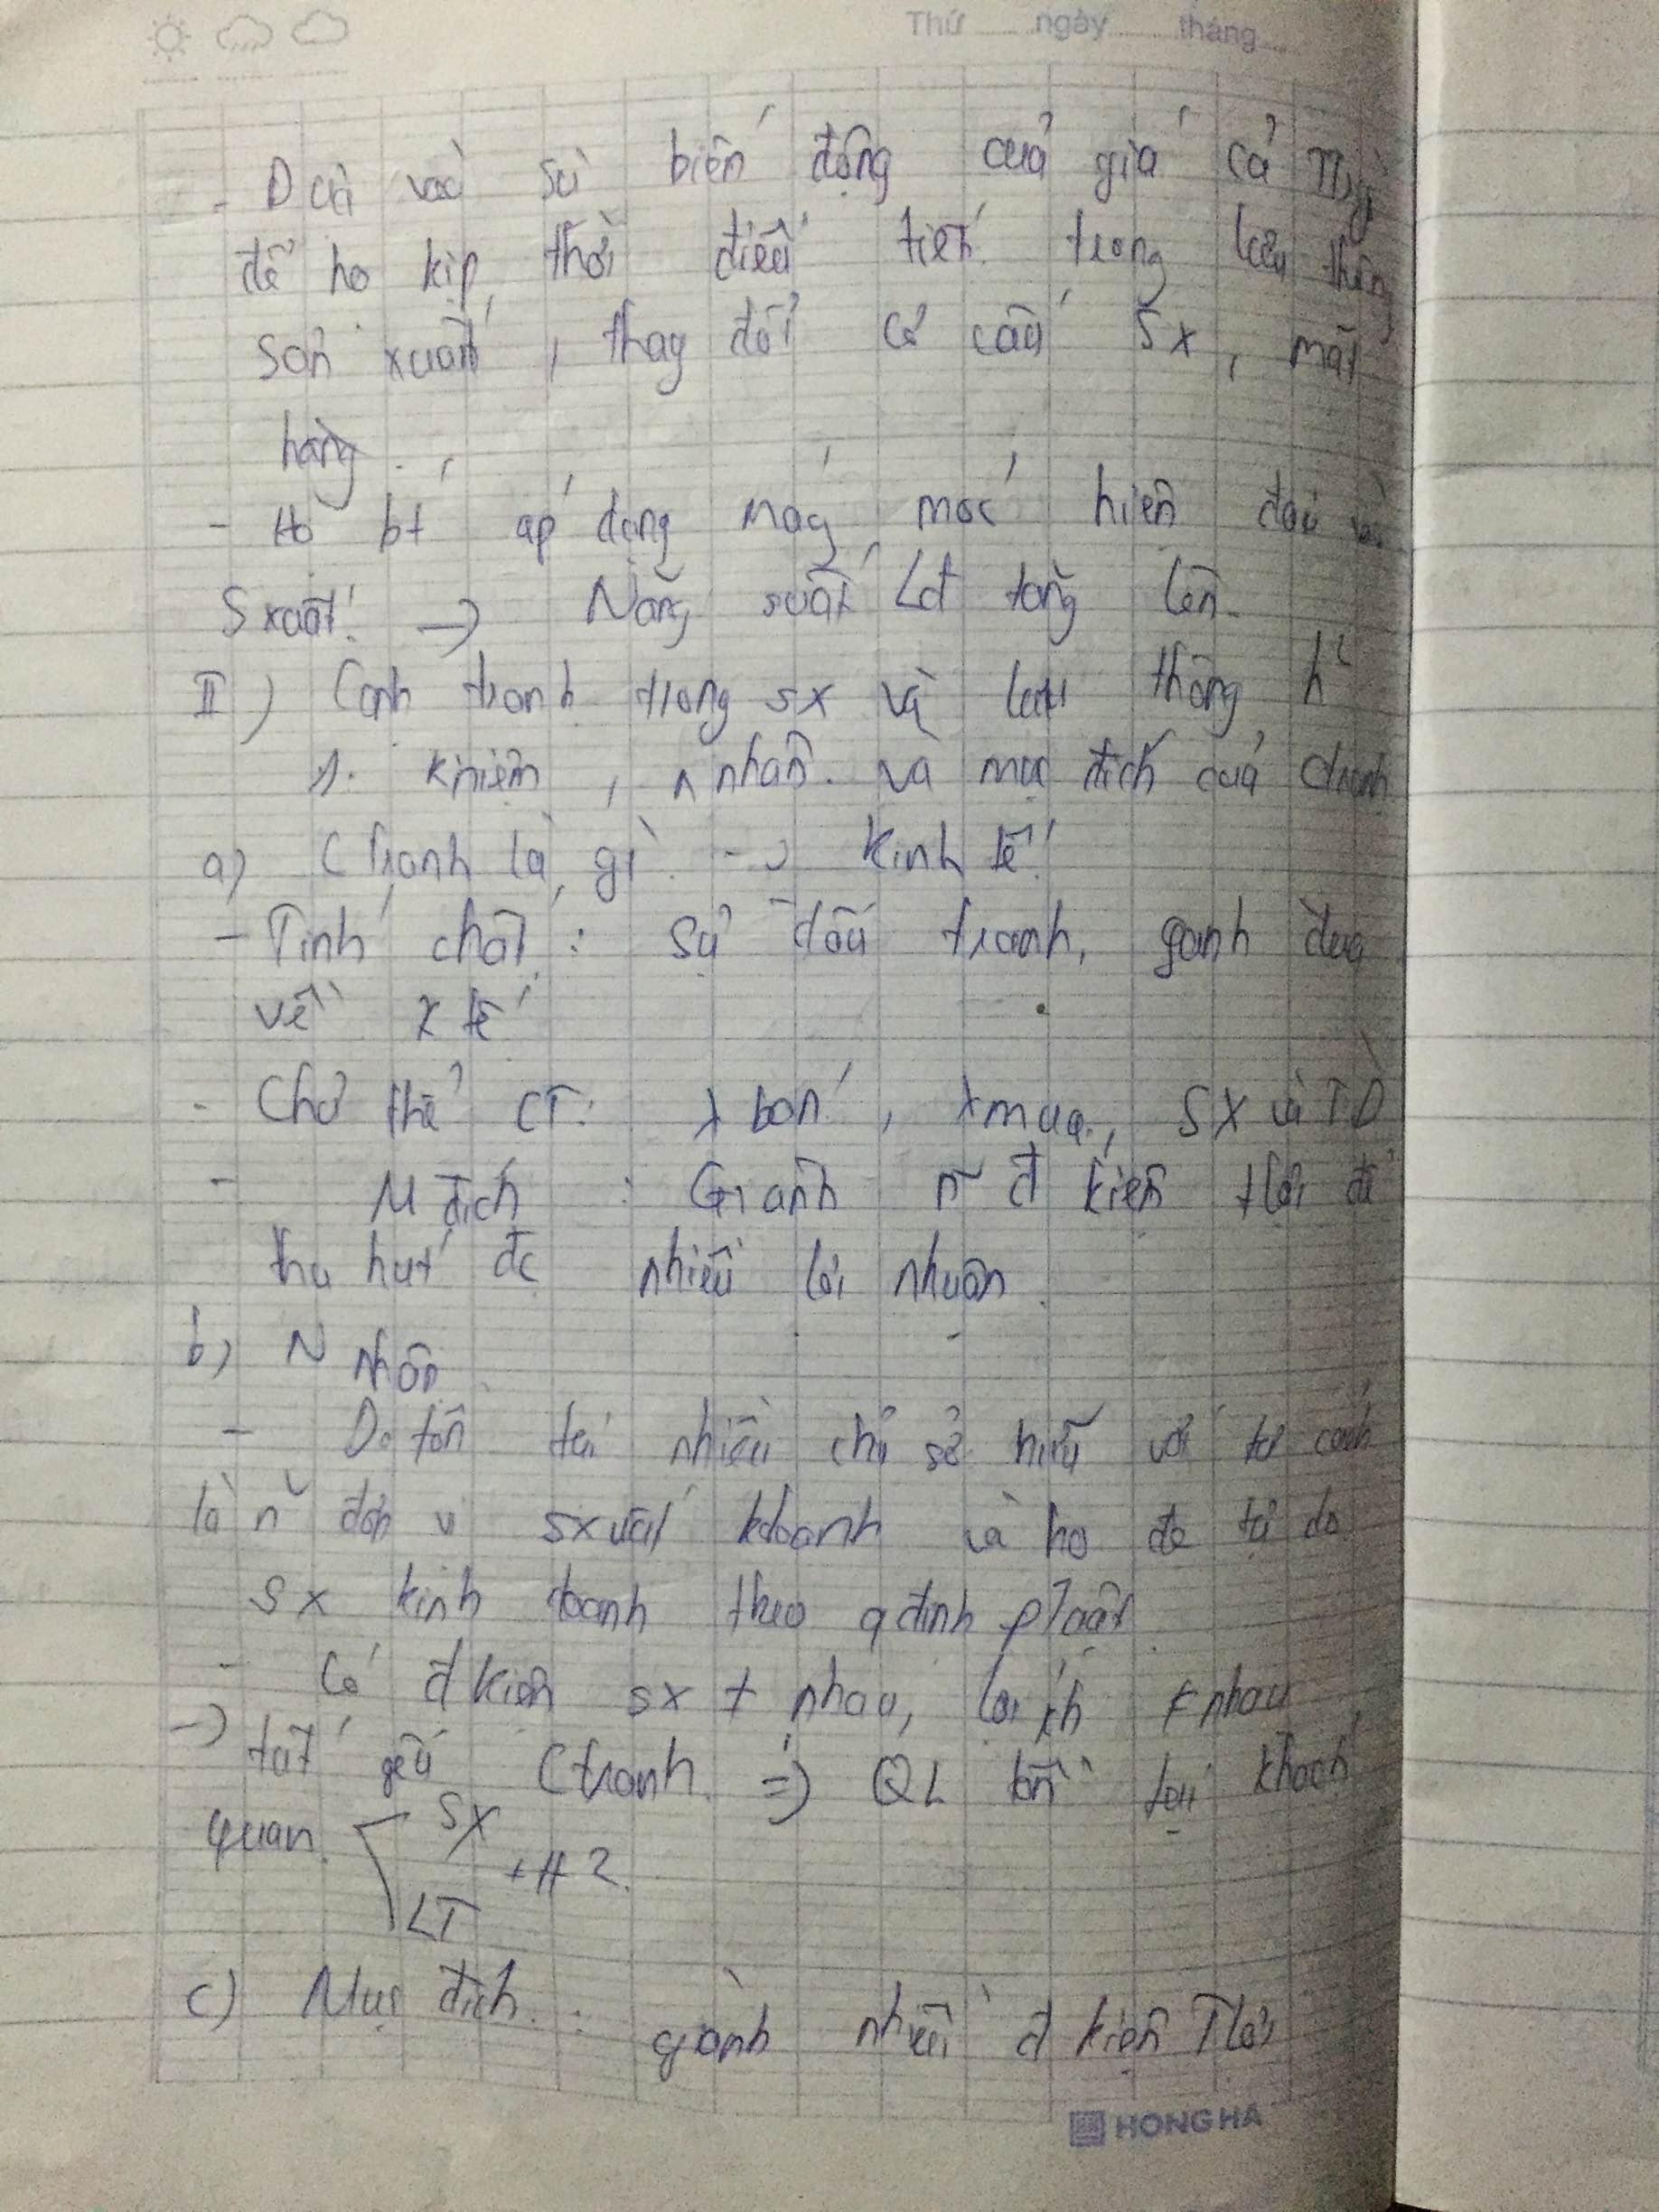 Thứ ngày tháng
- Dựa vào sự biến động của giá cả
để họ kịp thời điều tiết trong lưu thông
sản xuất, thay đổi cơ cấu Sx, mặt
hàng.
- Họ bt áp dụng máy móc hiện đại
Sxuất → Năng suất Lđ tăng lên.
II) Cạnh tranh trong sx và lưu thông h²
1. Kniệm, n nhân và mục đích của ctranh
a) Ctranh là gì → Kinh tế
- Tính chất: Sự đấu tranh, ganh đua
về ktế
- Chủ thể CT: bán, mua, SX và TD
- M đích: Giành n~ đ kiện tlợi để
thu hút đc nhiều lợi nhuận.
b) N nhân
- Do tồn tại nhiều chủ sở hữu với tư cách
là n~ đơn vị sxuất kdoanh và họ đc tự do
sx kinh doanh theo qđịnh pluật
- Có đkiện sx ≠ nhau, lợi ích ≠ nhau
→ tất yếu Ctranh ⇒ QL tồn tại khách
quan SX
H2.
LT
c) Mục đích: giành nhiều đ kiện Tlợi
HONG HA